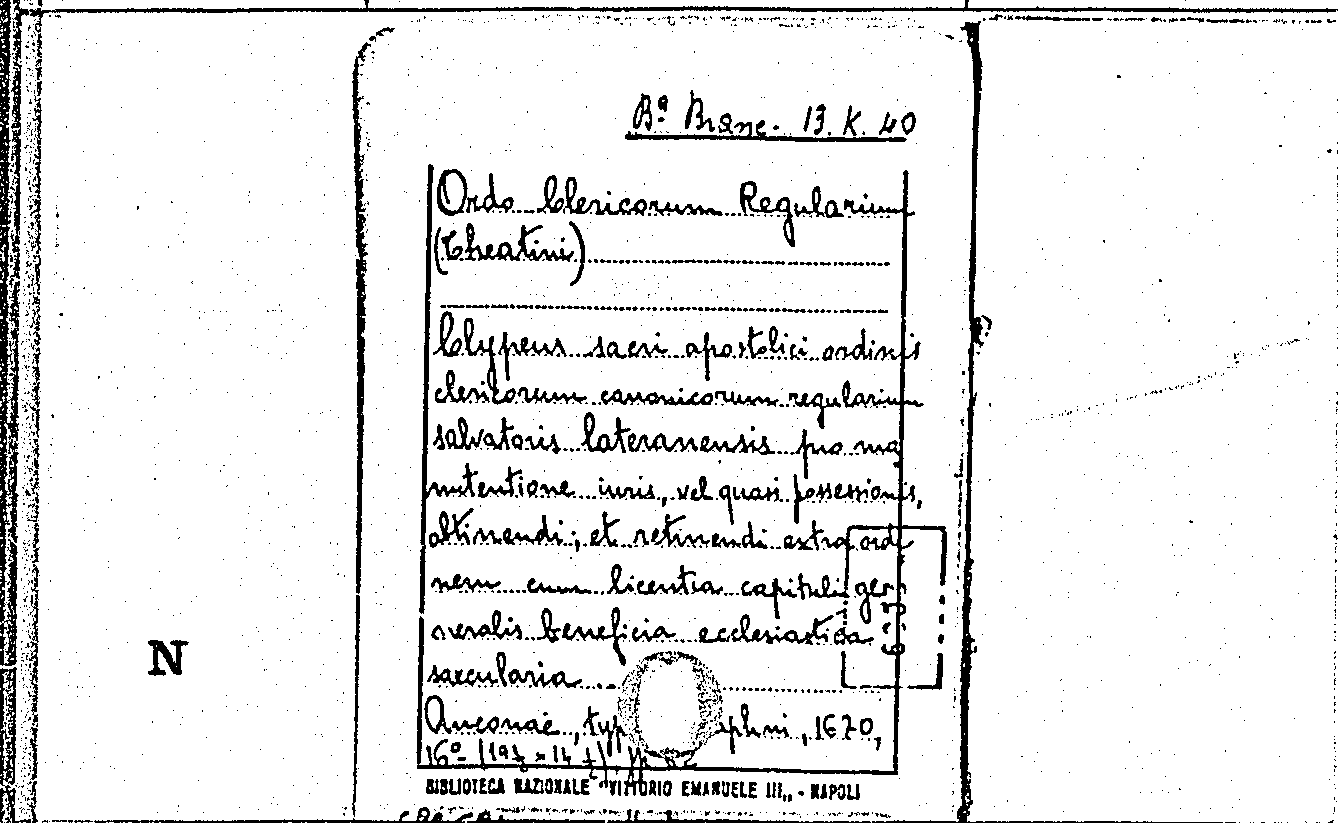 Bª Branc. 13. K. 40
Ordo Clericorum Regularium
(Theatini)
Clypeus sacri apostolici ordinis
clericorum canonicorum regularium
salvatoris lateranensis pro ma
nutentione iuris, vel quasi possessionis,
obtinendi; et retinendi extra ordi
nem cum licentia capituli ge-
neralis beneficia ecclesiastica
saecularia
N
Anconae, typ phni, 1670,
16º
BIBLIOTECA NAZIONALE "VITTORIO EMANUELE III„ - NAPOLI